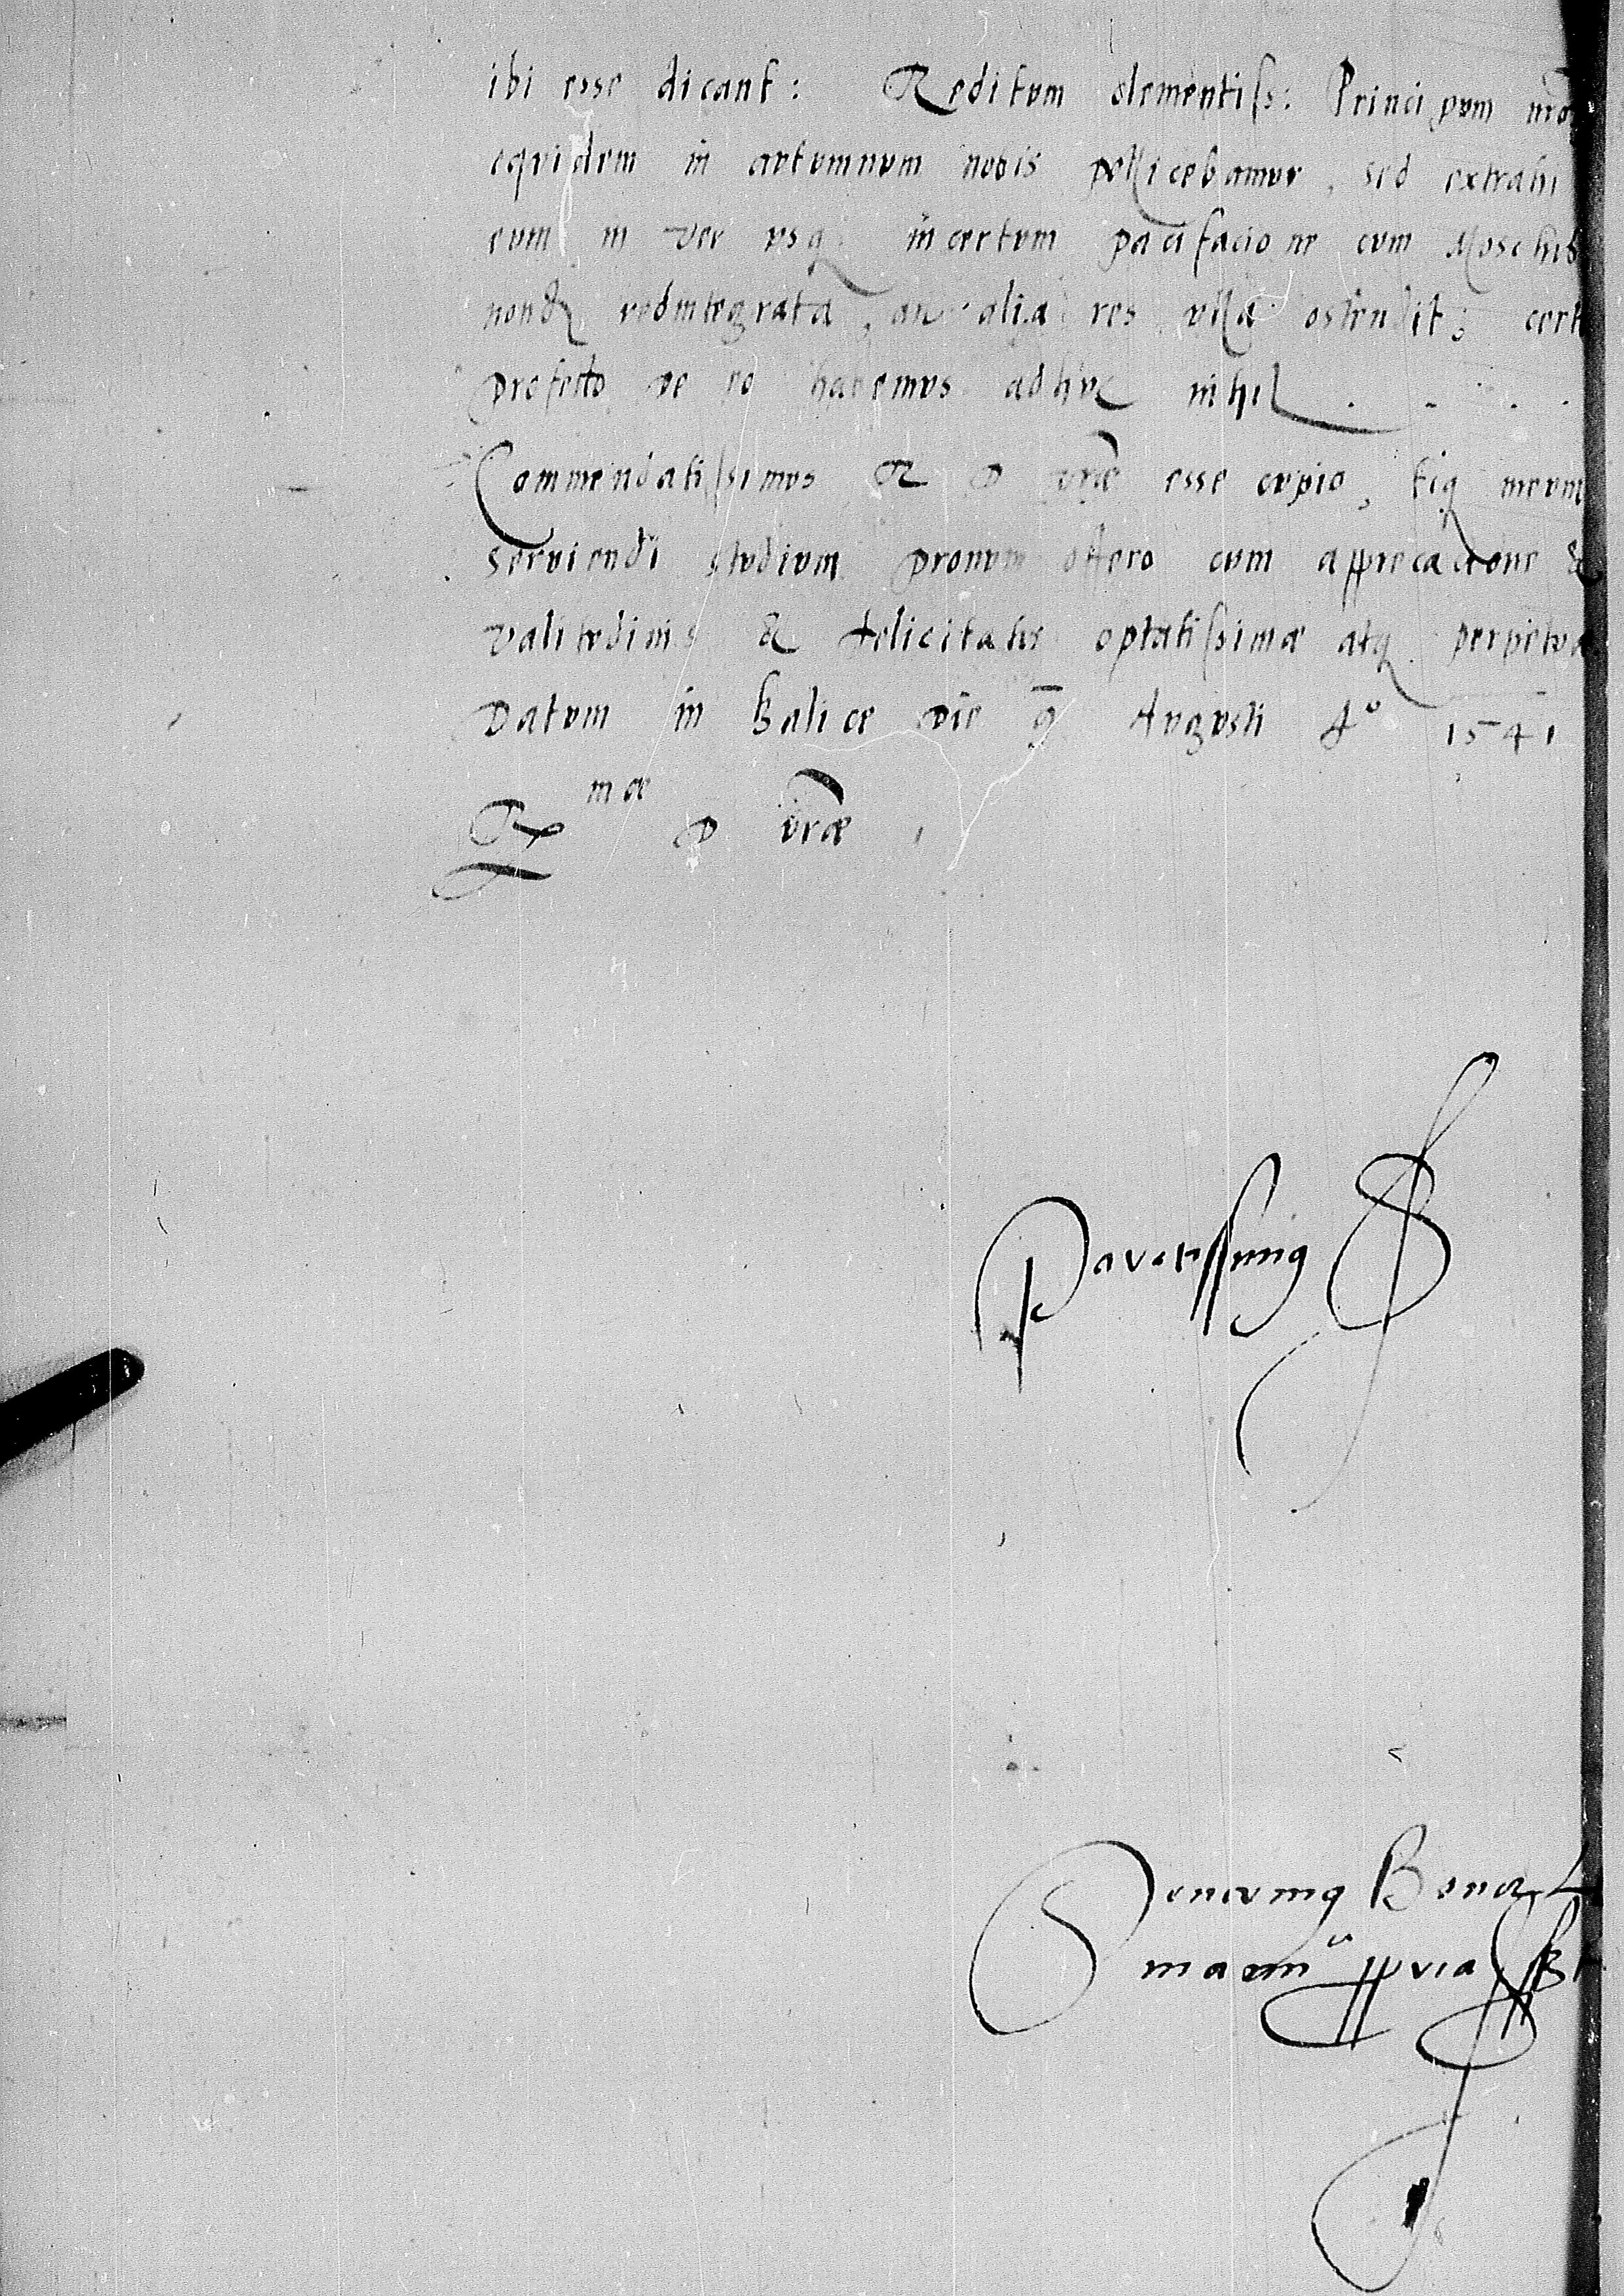 ibi esse dicant: Reditum clementiss: Principum nrõ
equidem in autumnum nobis pollicebamur, sed extrahi
eum in ver usq incertum pacifacione cum Moschis
nondũ redintegrata, an alia res ulla ostendit; cert
profecto de eo habemus adhuc nihil . - . .
Commendatissimus R D vrae esse cupio, eiq meum
serviendi studium pronum offero cum apprecacione &
valitudinis & felicitatis optatissimae atq perpetua
Datum in Balice die 9 Augusti A° 1541
R mae D vrae
Deditissimus S
Severinus Boner
manu ppria sst